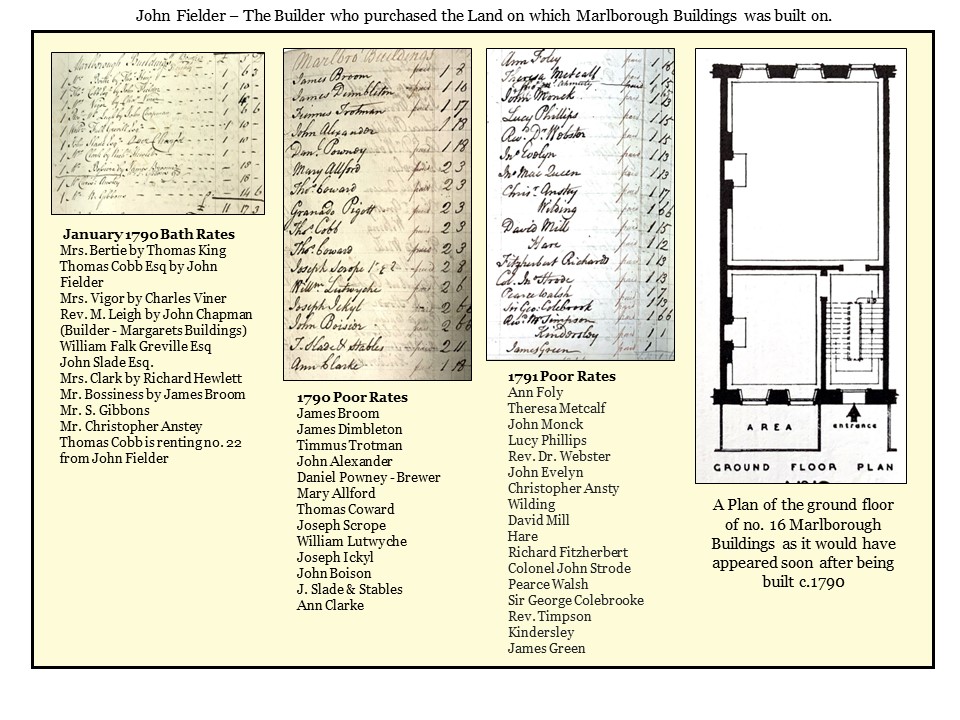 John Fielder – The Builder who purchased the Land on which Marlborough Buildings was built on.
Marlborough Buildings
January 1790 Bath Rates
Mrs. Bertie by Thomas King
Thomas Cobb Esq by John
Fielder
Mrs. Vigor by Charles Viner
Rev. M. Leigh by John Chapman
(Builder - Margarets Buildings)
William Falk Greville Esq
John Slade Esq.
Mrs. Clark by Richard Hewlett
Mr. Bossiness by James Broom
Mr. S. Gibbons
Mr. Christopher Anstey
Thomas Cobb is renting no. 22
from John Fielder
Marlbro Buildings
James Broom paid 1 8
James Dimbleton paid 1 10
Timmus Trotman paid 1 17
John Alexander 1 18
Danl. Powney 1 18
Mary Allford paid 2 3
Thos. Coward paid 2 3
Granado Pigott paid 2 3
Thos. Cobb paid 2 3
Thos. Coward paid 2 3
Joseph Scrope 2 8
Willm. Lutwyche 2 6
Joseph Ickyl
John Boisier
J. Slade & Stables 2 11
Ann Clarke 1 18
1790 Poor Rates
James Broom
James Dimbleton
Timmus Trotman
John Alexander
Daniel Powney - Brewer
Mary Allford
Thomas Coward
Joseph Scrope
William Lutwyche
Joseph Ickyl
John Boison
J. Slade & Stables
Ann Clarke
Ann Foley paid
Theresa Metcalf
John Monck paid 1 13
Lucy Phillips paid 1 15
Revd. Dr. Webster paid 1 15
Jno. Evelyn paid 1 13
Jno. Mac Queen paid 1 13
Chrisr. Anstey paid 1 17
Wilding paid
David Mill paid 1 15
Hare paid 1 12
Fitzherbert Richards 1 13
Col. Jno. Strode 1 13
Pearce Walsh
Sir Geo. Colebrook
Revd. Mr. Timpson
Kindersley 1 1
James Green
1791 Poor Rates
Ann Foly
Theresa Metcalf
John Monck
Lucy Phillips
Rev. Dr. Webster
John Evelyn
Christopher Ansty
Wilding
David Mill
Hare
Richard Fitzherbert
Colonel John Strode
Pearce Walsh
Sir George Colebrooke
Rev. Timpson
Kindersley
James Green
AREA
entrance
GROUND FLOOR PLAN
A Plan of the ground floor
of no. 16 Marlborough
Buildings as it would have
appeared soon after being
built c.1790